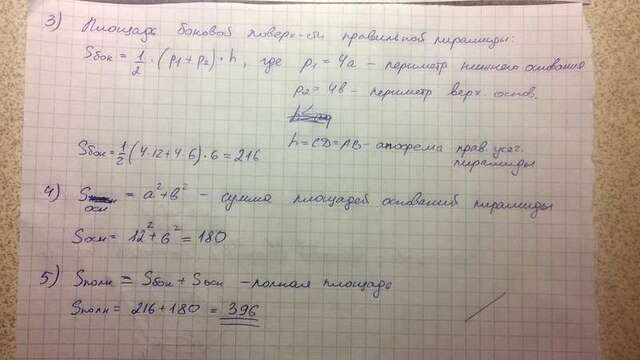 3) Площадь боковой поверх-сти правильной пирамиды:
Sбок = 1/2 · (p1 + p2) · h, где p1 = 4a – периметр нижнего основания
p2 = 4в – периметр верх. основ.
h = CD = AB – апофема прав. усеч.
Sбок = 1/2 (4·12 + 4·6) · 6 = 216
пирамиды
4) Sосн = a² + в² – сумма площадей оснований пирамиды
Sосн = 12² + 6² = 180
5) Sполн = Sбок + Sосн – полная площадь
Sполн = 216 + 180 = 396